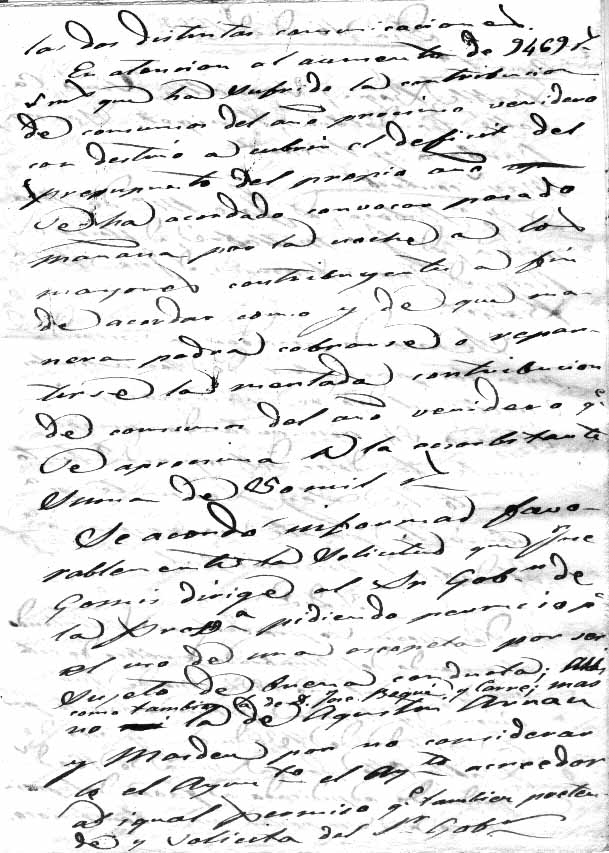 las dos distintas comunicaciones.
En atencion al aumento de 9469 rs
que ha sufrido la contribucion
de consumos del año procsimo venidero
con destino a cubrir el deficit del
presupuesto del propio año
se ha acordado convocar pasado
mañana por la noche a los
mayores contribuyentes a fin
de acordar como y de que ma-
nera podrá cobrarse o repar-
tirse la mentada contribucion
de consumos del año venidero qe
se aprocsima a la ecsorbitante
suma de 50 mil r
Se acordó informar favo-
rablemente la solicitud que Jose
Gomis dirige al Sr Gobr de
la Prova pidiendo permiso pa
el uso de una escopeta por ser
sujeto de buena conducta;
como tambien la de D. Jose Bequé y Carné; mas
no la de Agustin Arnau
y Masdeu por no considerar
le el Ayunto acreedor
al igual permiso qe tambien preten-
de y solicita del Sr Gobr